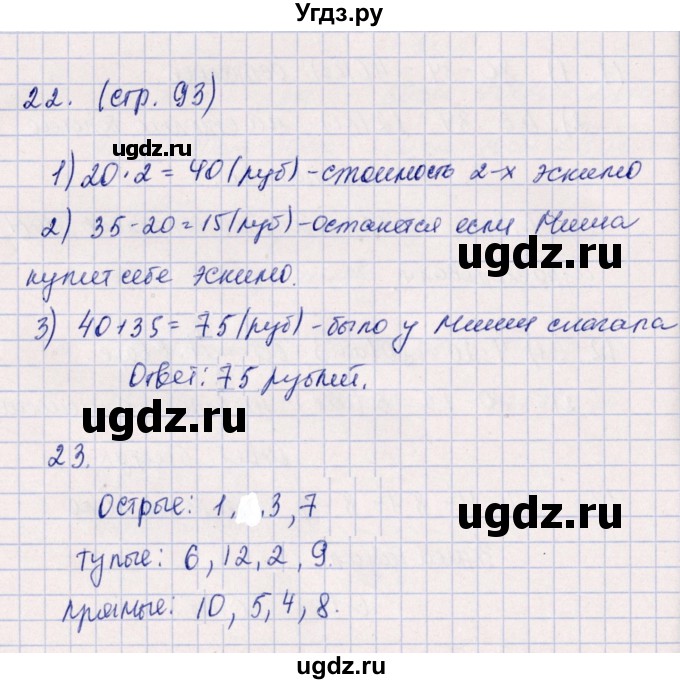 Угдз.ру
22. (стр. 93)
ugdz.ru
1) 20·2=40(руб)-стоимость 2-х эскимо
2) 35-20=15(руб)-останется если Миша
ugdz.ru
купит себе эскимо.
ugdz.ru
3) 40+35=75(руб)-было у Миши сначала
Ответ: 75 рублей.
ugdz.ru
23.
ugdz.ru
Острые: 1, ,3,7
тупые: 6,12,2,9.
прямые: 10,5,4,8.
ugdz.ru
ugdz.ru